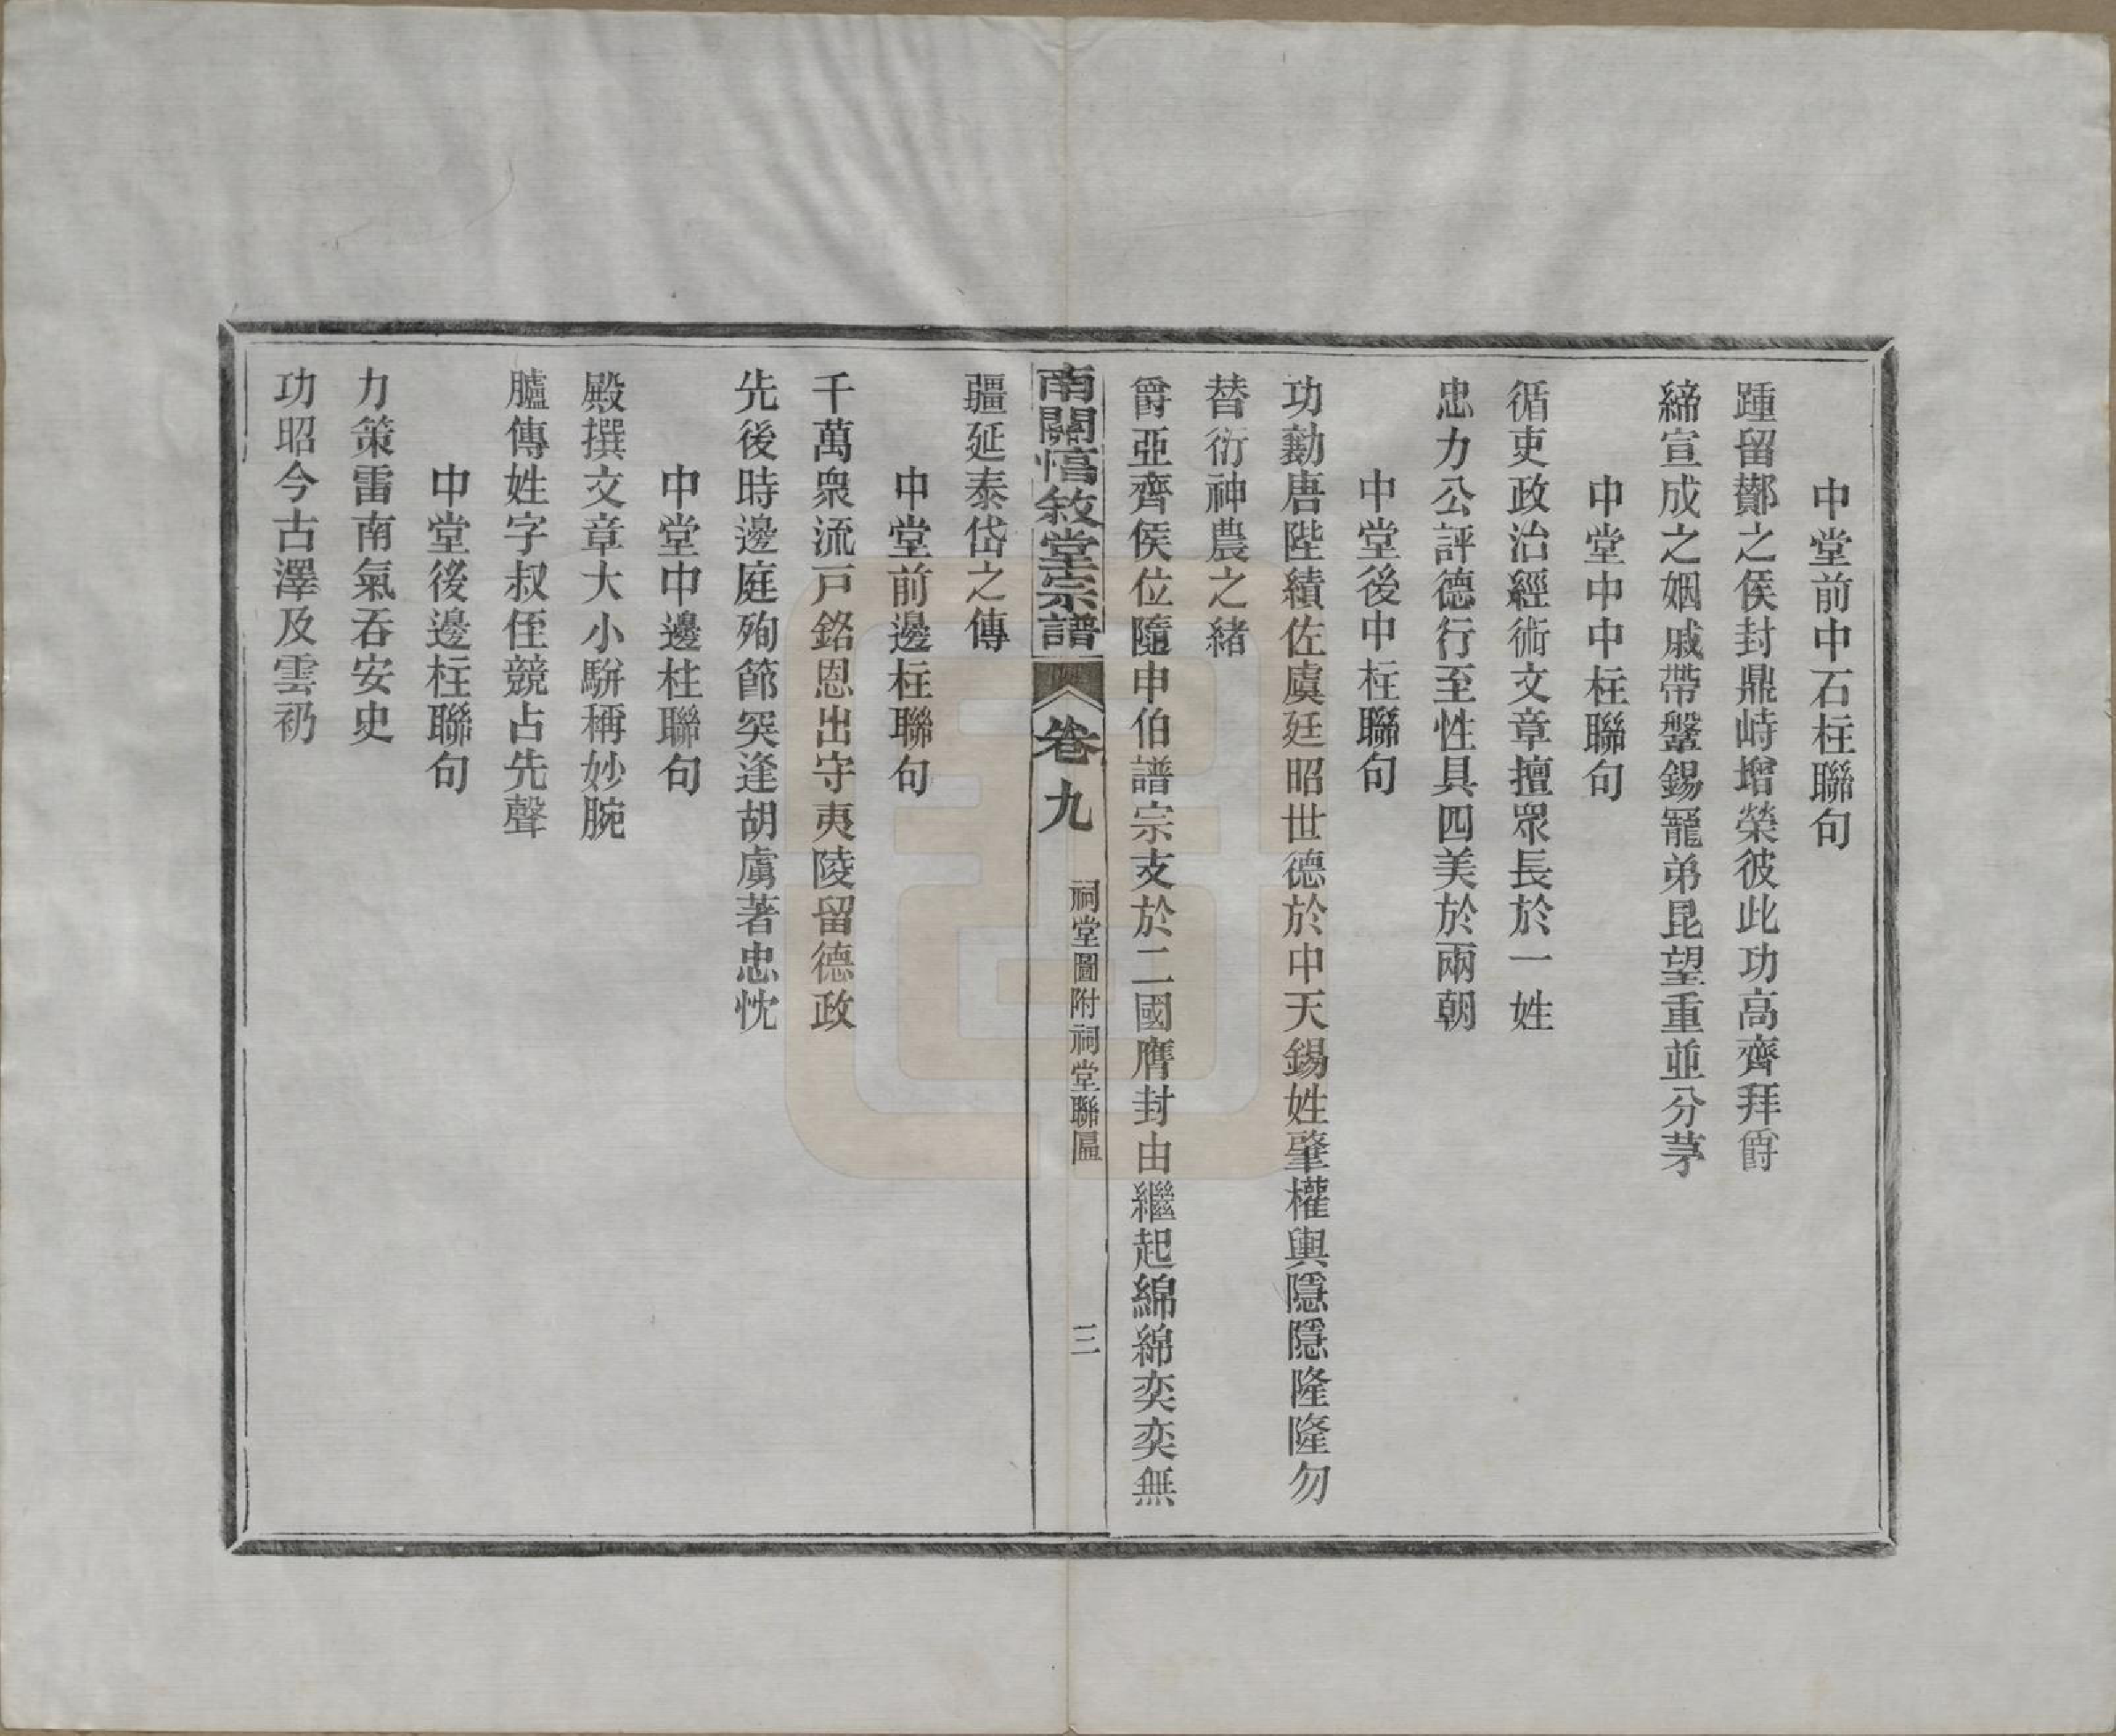 中堂前中石柱聯句
踵留酇之侯封鼎峙增榮彼此功高齊拜爵
締宣成之姻戚帶鞶錫寵弟昆望重並分茅
中堂中中柱聯句
循吏政治經術文章擅眾長於一姓
忠力公評德行至性具四美於兩朝
中堂後中柱聯句
功勷唐陛績佐虞廷昭世德於中天錫姓肇權輿隱隱隆隆勿
替衍神農之緒
爵亞齊侯位隨申伯譜宗支於二國膺封由繼起綿綿奕奕無
南關惇敘堂宗譜 卷九 祠堂圖附祠堂聯匾 三
疆延泰岱之傳
中堂前邊柱聯句
千萬衆流戸銘恩出守夷陵留德政
先後時邊庭殉節突逢胡虜著忠忱
中堂中邊柱聯句
殿撰文章大小駢稱妙腕
臚傳姓字叔侄競占先聲
中堂後邊柱聯句
力策雷南氣吞安史
功昭今古澤及雲礽